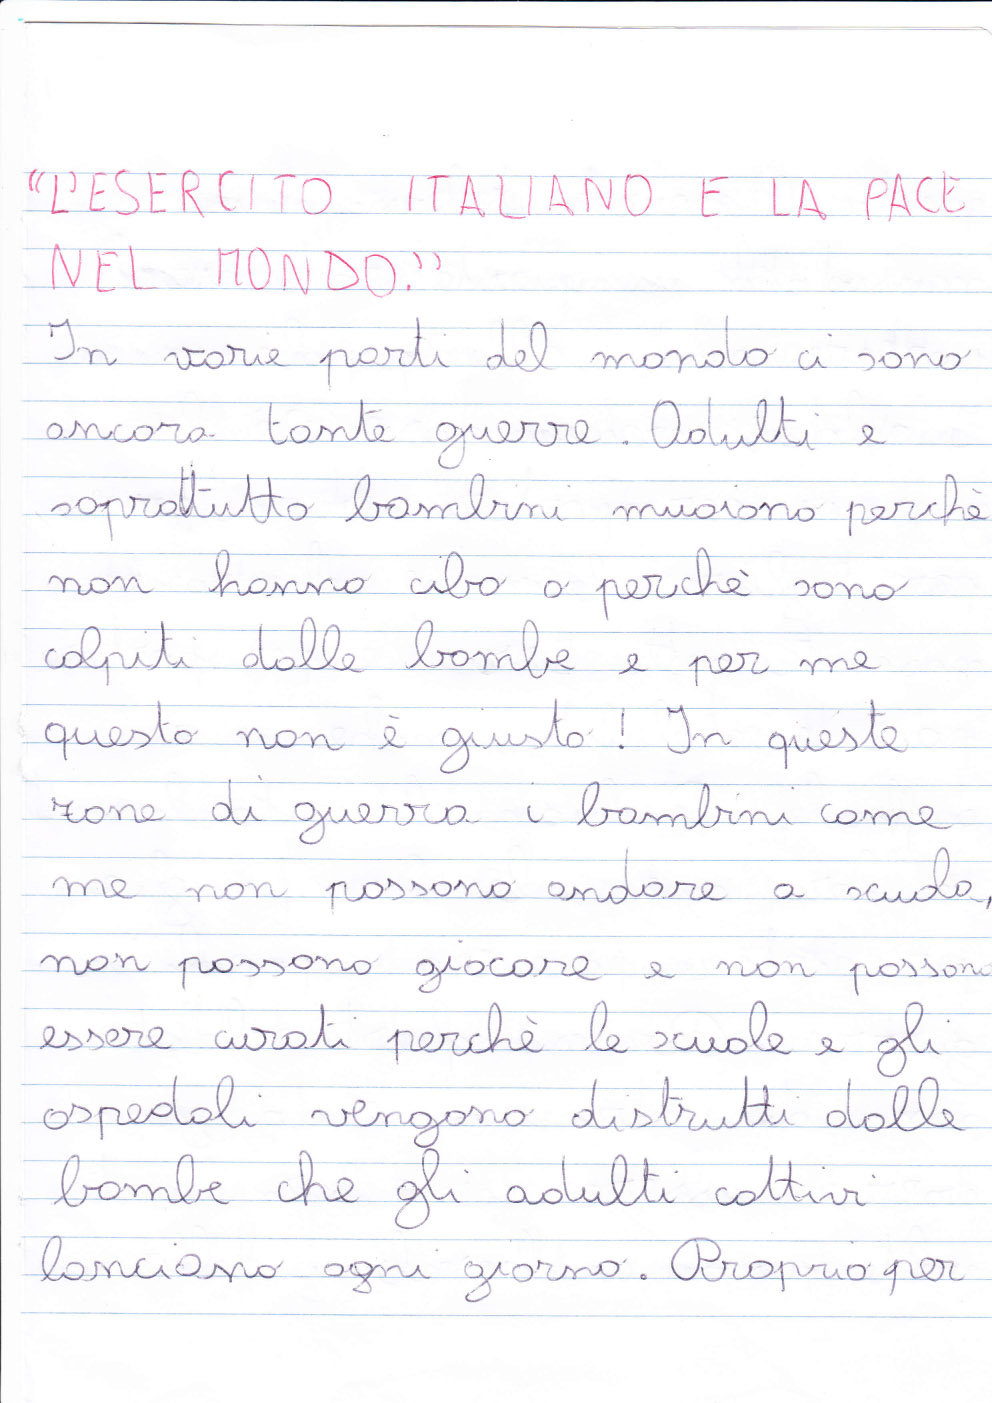 “L'ESERCITO ITALIANO E LA PACE
NEL MONDO.”
In varie parti del mondo ci sono
ancora tante guerre. Adulti e
soprattutto bambini muoiono perchè
non hanno cibo o perchè sono
colpiti dalle bombe e per me
questo non è giusto! In queste
zone di guerra i bambini come
me non possono andare a scuola,
non possono giocare e non possono
essere curati perchè le scuole e gli
ospedali vengono distrutti dalle
bombe che gli adulti cattivi
lanciano ogni giorno. Proprio per